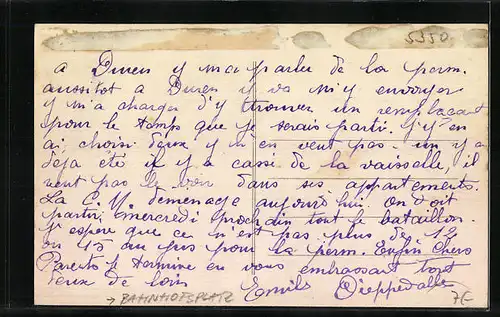 5350
a Duren y m'a parler de la perm.
aussitot a Duren y va m'y envoyer
y m'a charger d'y trouver un remplaçant
pour le temps que je serais parti. J'y en
ai choisi deux y n'en veut pas. un y a
déja été il y a cassé de la vaisselle, il
veut pas le voir dans ses appartements.
La C.M. demenage aujourd'hui. on doit
partir mercredi prochain tout le bataillon.
J'espere que ce n'est pas plus de 12
ou 15 au pus pour la perm. Enfin chers
Parents je termine en vous embrassant tout
deux de loin Emile Dieppedalle
→ BAHNHOFSPLATZ
7E